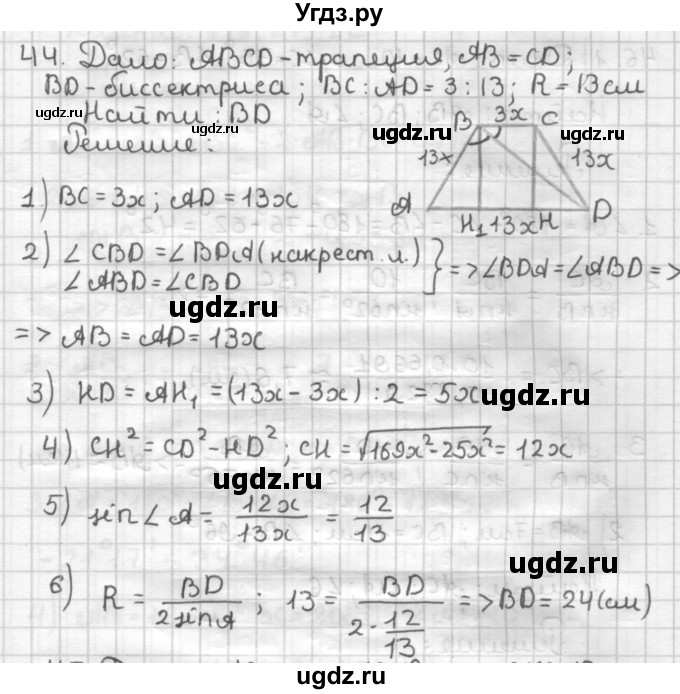 Угдз.ру
44. Дано: ABCD - трапеция, AB = CD;
BD - биссектриса; BC : AD = 3 : 13; R = 13 см
Найти: BD
Решение:
B 3x C
13x 13x
A H₁ 13x H D
1) BC = 3x; AD = 13x
2) ∠CBD = ∠BDA (накрест. л.)
∠ABD = ∠CBD } => ∠BDA = ∠ABD =>
=> AB = AD = 13x
3) HD = AH₁ = (13x - 3x) : 2 = 5x
4) CH² = CD² - HD²; CH = √169x² - 25x² = 12x
5) sin∠A = 12x/13x = 12/13
6) R = BD/2sinA; 13 = BD/2·12/13 => BD = 24 (см)
ugdz.ru
ugdz.ru
ugdz.ru
ugdz.ru
ugdz.ru
ugdz.ru
ugdz.ru
ugdz.ru
ugdz.ru
ugdz.ru
ugdz.ru
ugdz.ru